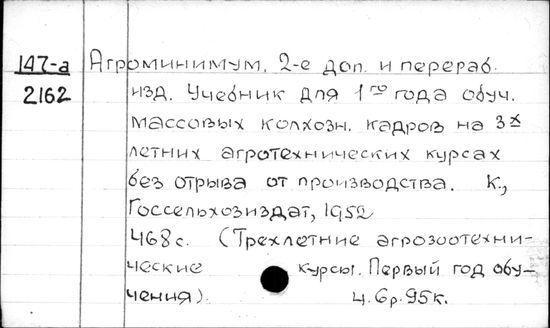 147-а Агроминимум. 2-е доп. и перераб.
2162 изд. Учебник для 1го года обуч.
массовых колхозн. кадров на 3х
летних агротехнических курсах
без отрыва от производства. К.,
Госсельхозиздат, 1952
468с. (Трехлетние агрозоотехни-
ческие курсы. Первый год обу-
чения). ц. 6р. 95к.